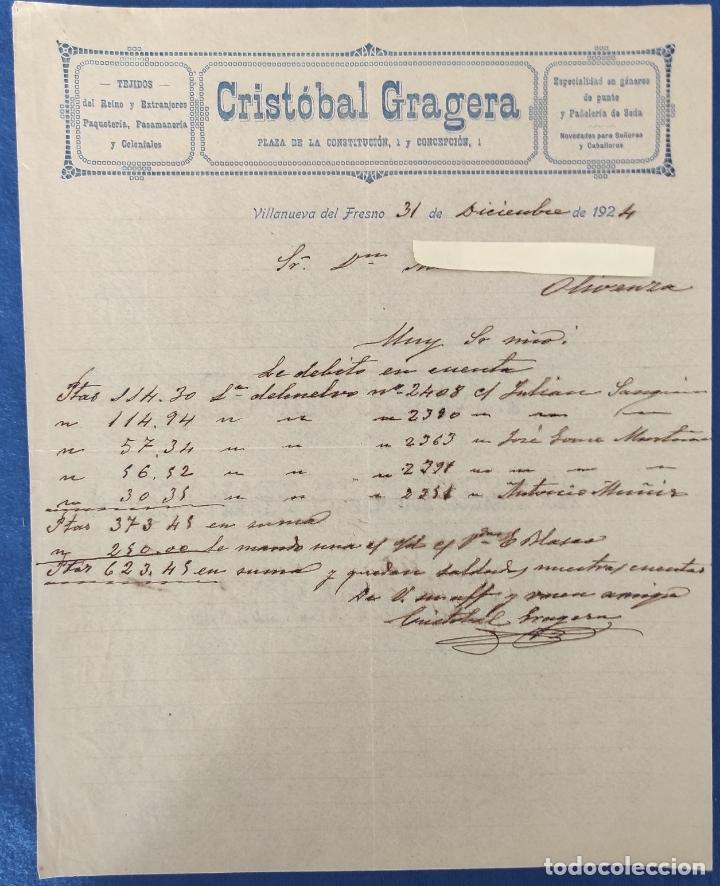 — TEJIDOS —
del Reino y Extranjeros
Paquetería, Pasamanería
y Coloniales
Cristóbal Gragera
PLAZA DE LA CONSTITUCIÓN, 1 y CONCEPCIÓN, 1
Especialidad en géneros
de punto
y Pañolería de Seda
Novedades para Señoras
y Caballeros
Villanueva del Fresno 31 de Diciembre de 1924
Sr. Dn
Olivenza
Muy Sr mio:
Le debito en cuenta
Ptas 114.30 Le devuelvo nº 2408 c/ Julian
" 114.94 " " " 2390 " " "
" 57.34 " " " 2363 " José
" 56.52 " " " " " " "
" 30.35 " " " " Antonio Muñiz
Ptas 373.45 en suma
" 250.00 Le mando una c/ c/ E Blasco
Ptas 623.45 en suma y quedan saldadas nuestras cuentas
De V. su aff y buen amigo
Cristobal Gragera
todocoleccion